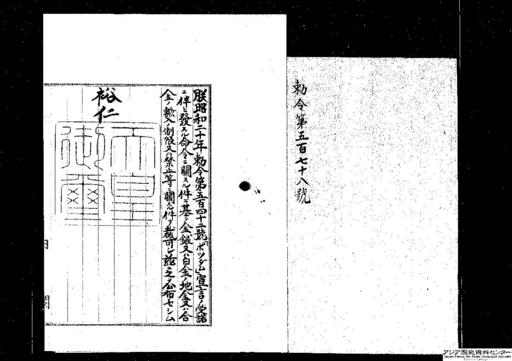 勅令第五百七十八號
朕昭和二十年勅令第五百四十二號「ポツダム」宣言ノ受諾
ニ伴ヒ發スル命令ニ關スル件ニ基ク金銀又ハ白金ノ地金又ハ合
金ノ輸入制限又ハ禁止等ニ關スル件ヲ裁可シ茲ニ之ヲ公布セシム
裕仁
天皇
御璽
アジア歴史資料センター